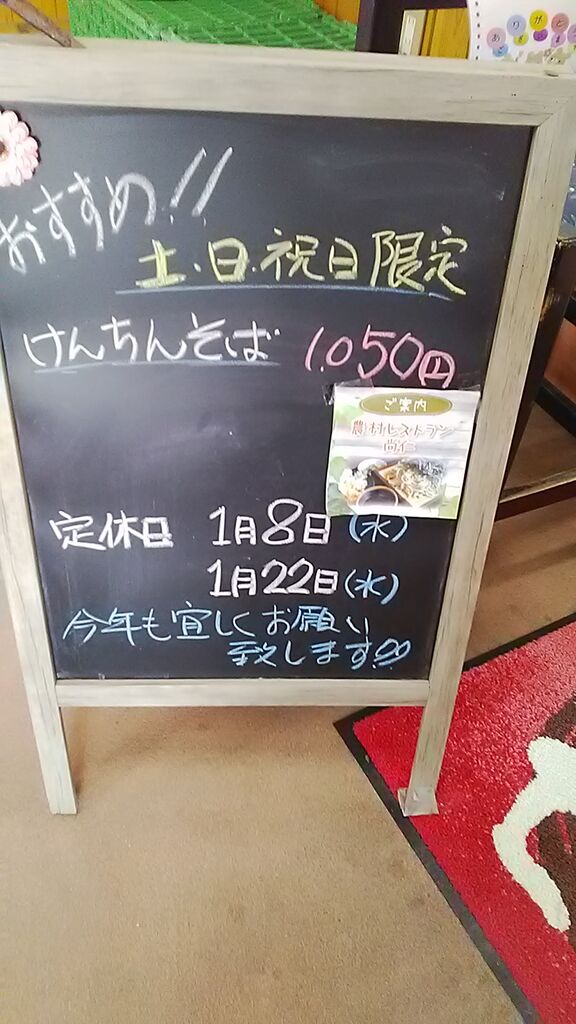 おすすめ!!
土・日・祝日限定
けんちんそば 1,050円
ご案内
農村レストラン
尚仁
定休日 1月8日(水)
1月22日(水)
今年も宜しくお願い
致します!!
ありがとう